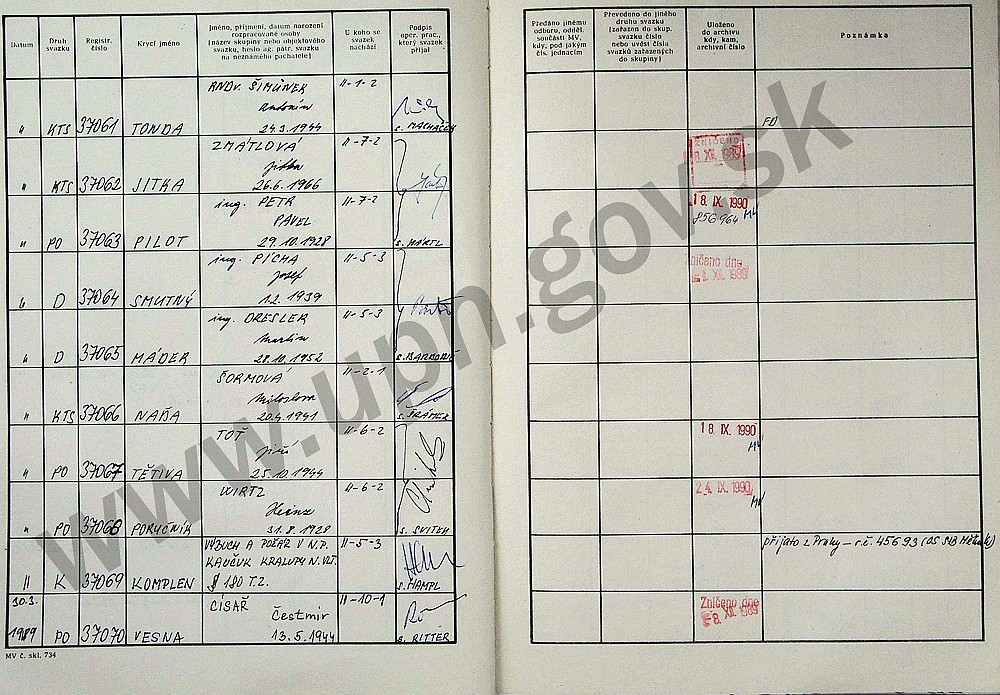 Datum
Druh
svazku
Registr.
číslo
Krycí jméno
Jméno, příjmení, datum narození
rozpracované osoby
(název skupiny nebo objektového
svazku, heslo ag. pátr. svazku
na neznámého pachatele)
U koho se
svazek
nachází
Podpis
oper. prac.,
který svazek
přijal
Předáno jinému
odboru, odděl.
součásti MV,
kdy, pod jakým
čís. jednacím
Převedeno do jiného
druhu svazku
(zařazen do skup.
svazku číslo
nebo uvést čísla
svazků zařazených
do skupiny)
Uloženo
do archivu
kdy, kam,
archivní číslo
Poznámka
RNDr. ŠIMŮNEK II-1-2
Antonín
" KTS 37061 TONDA 24.3.1944 s. MACHÁČEK FO
ZMÁTLOVÁ II-7-2
Jitka
" KTS 37062 JITKA 26.6.1966
ZNIČENO
8. XII. 1989
ing. PETR II-7-2
PAVEL
" PO 37063 PILOT 29.10.1928 s. HÁRTL
18. IX. 1990
856964 MV
ing. PÍCHA II-5-3
Josef
" D 37064 SMUTNÝ 1.2.1939
Zničeno dne
8. XII. 1989
ing. DRESLER II-5-3
Martin
" D 37065 MÁDER 28.10.1952
ŠORMOVÁ II-2-1
Miloslava
" KTS 37066 NAĎA 20.4.1941 s. ŠRÁMEK
TOŤ II-6-2
Jiří
" PO 37067 TĚTIVA 25.10.1944
18. IX. 1990
MV
WIRTZ II-6-2
Heinz
" PO 37068 PORUČNÍK 31.8.1928 s. SVITEK
24. IX. 1990
MV
VÝBUCH A POŽÁR V N.P. II-5-3
KAUČUK KRALUPY N. VLT.
" K 37069 KOMPLEN § 180 T.Z. s. HAMPL
přijato z Prahy – r.č. 45693 (OS SNB Mělník)
30.3. CÍSAŘ II-10-1
Čestmír
1989 PO 37070 VESNA 13.5.1944 s. RITTER
Zničeno dne
8. XII. 1989
MV č. skl. 734
www.upn.gov.sk